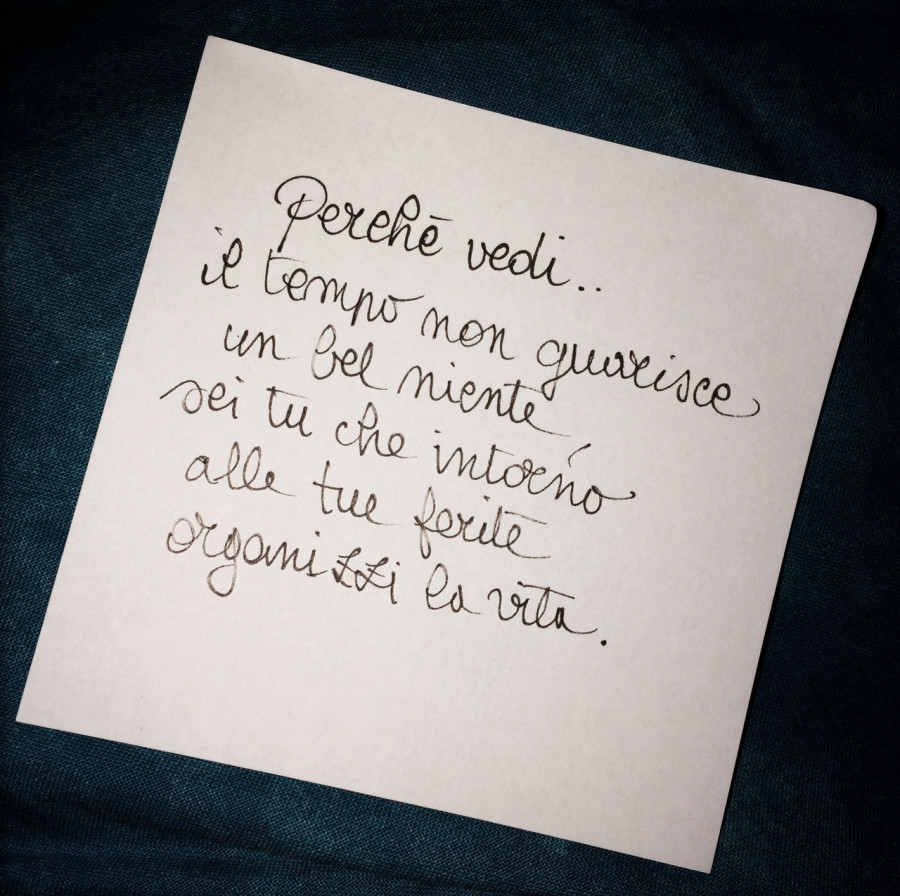 Perchē vedi..
il tempo non guarisce
un bel niente,
sei tu che intorno
alle tue ferite
organizzi la vita.